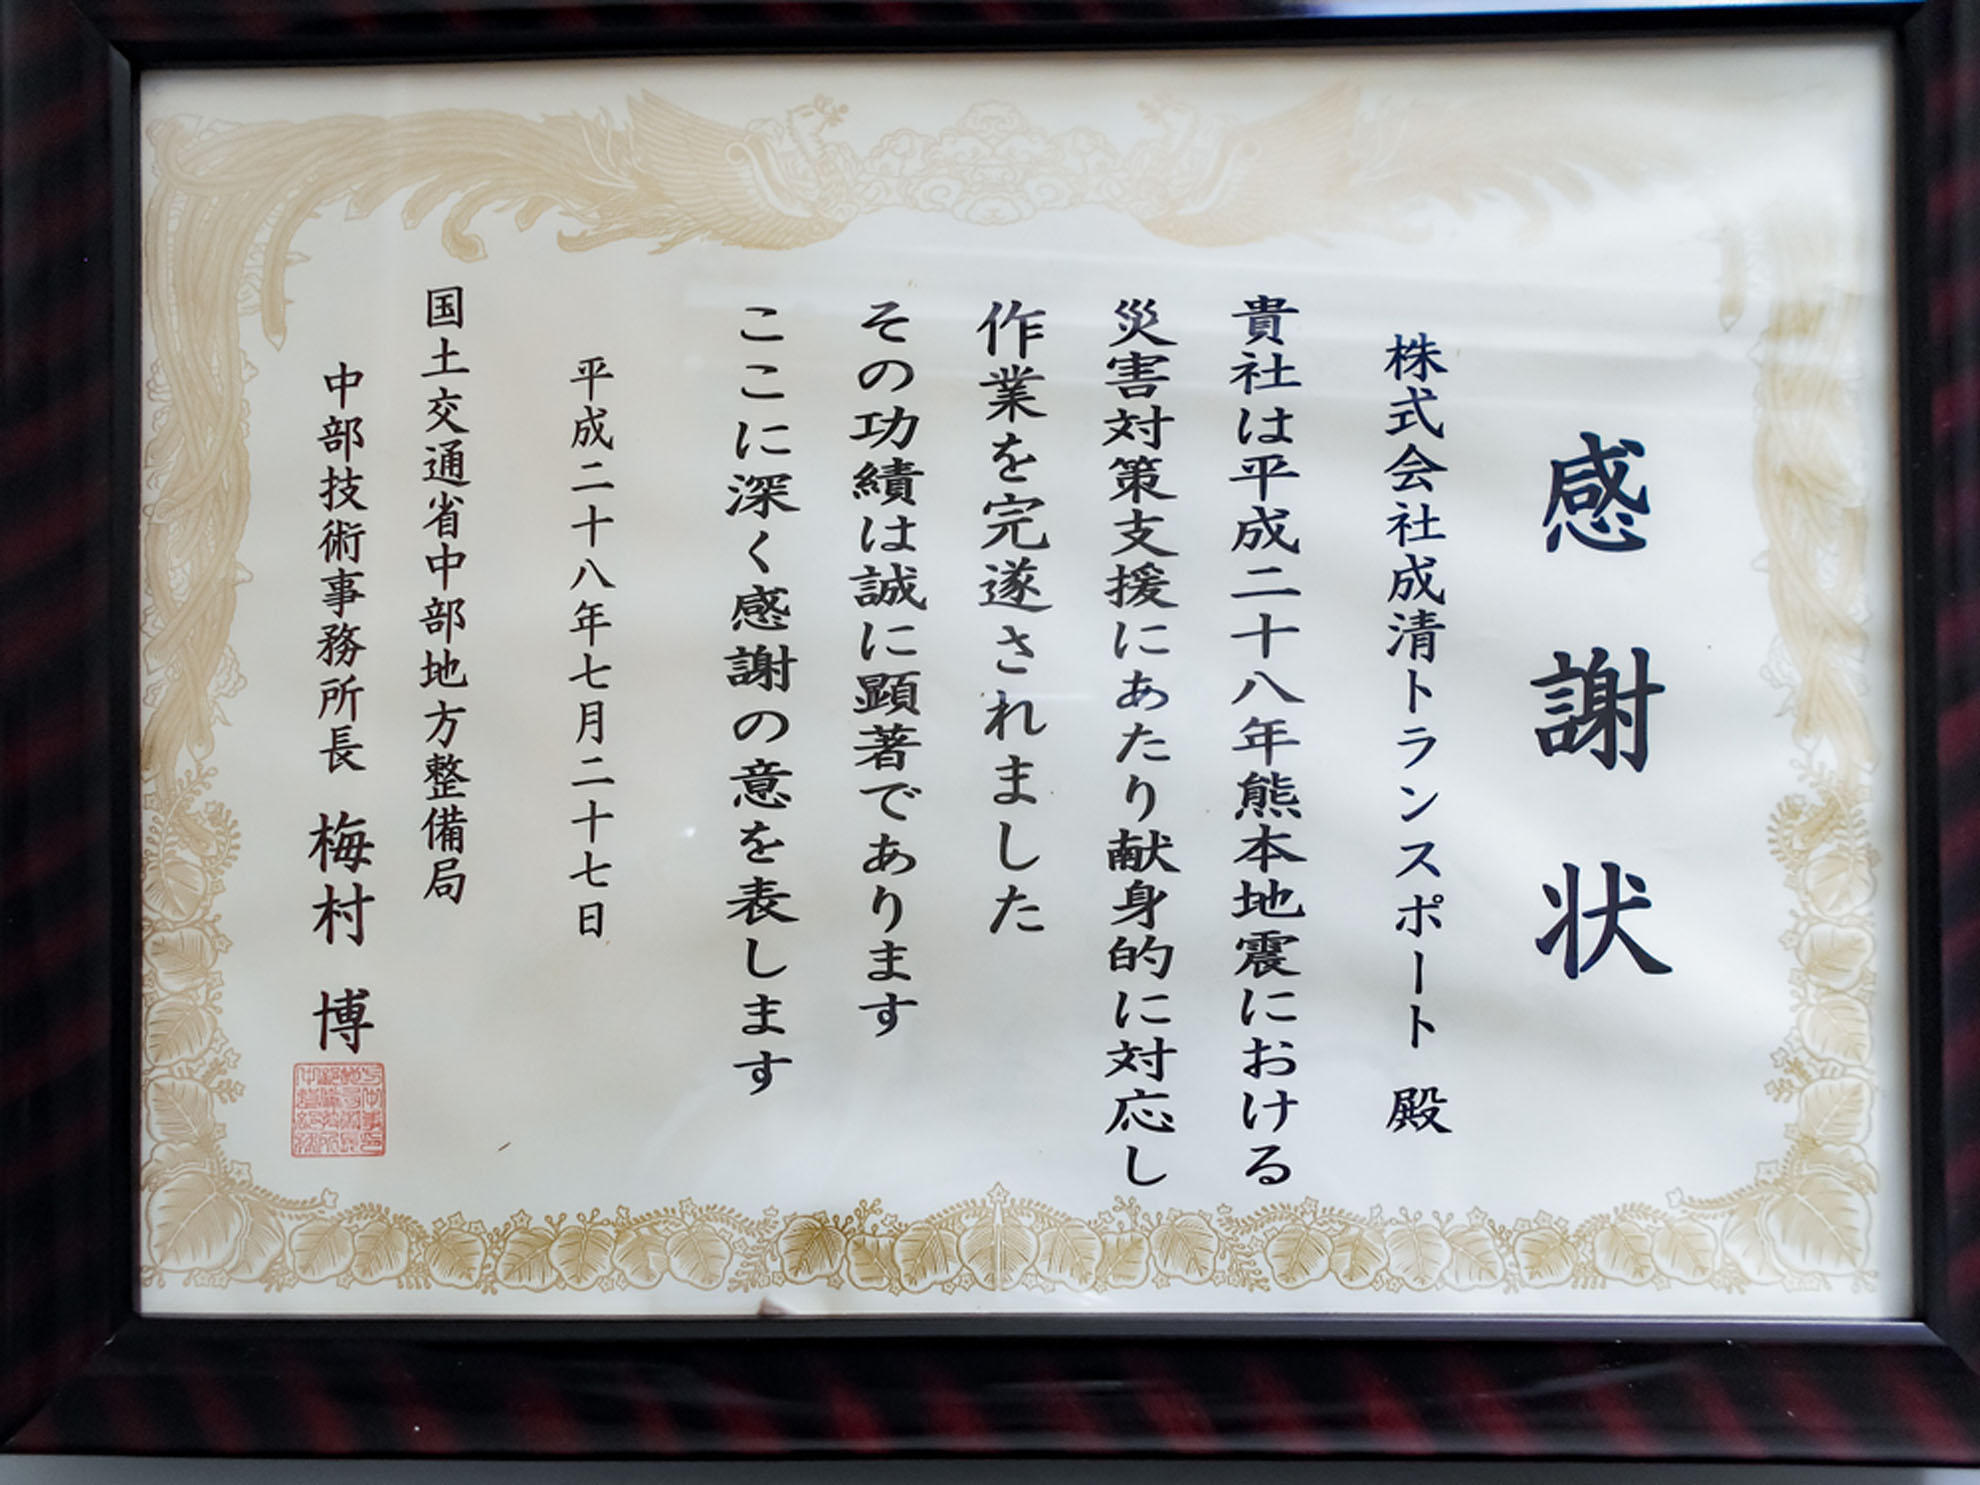 感謝状
株式会社成清トランスポート 殿
貴社は平成二十八年熊本地震における
災害対策支援にあたり献身的に対応し
作業を完遂されました
その功績は誠に顕著であります
ここに深く感謝の意を表します
平成二十八年七月二十七日
国土交通省中部地方整備局
中部技術事務所長 梅村 博